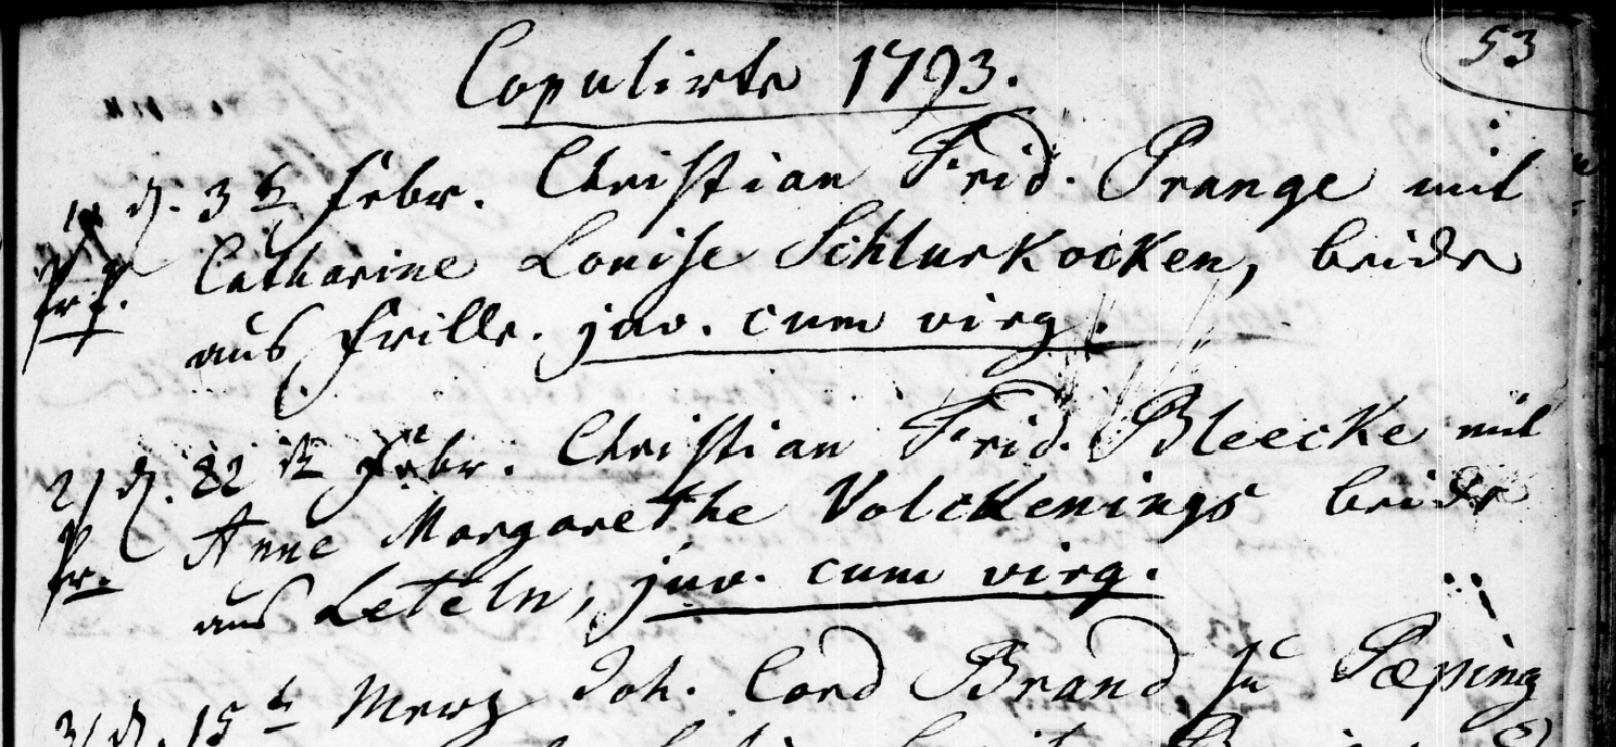 53
Copulirte 1793.
1, d. 3t Febr. Christian Frid. Prange mit
Catharine Louise Schlurkocken, beide
aus Frille. juv. cum virg.
2, d. 22t Febr. Christian Frid. Bleecke mit
fr. Anne Margarethe Volckenings beide
aus Leteln, juv. cum virg.
3, d. 15t Merz Joh. Cord Brand, zu Pæping